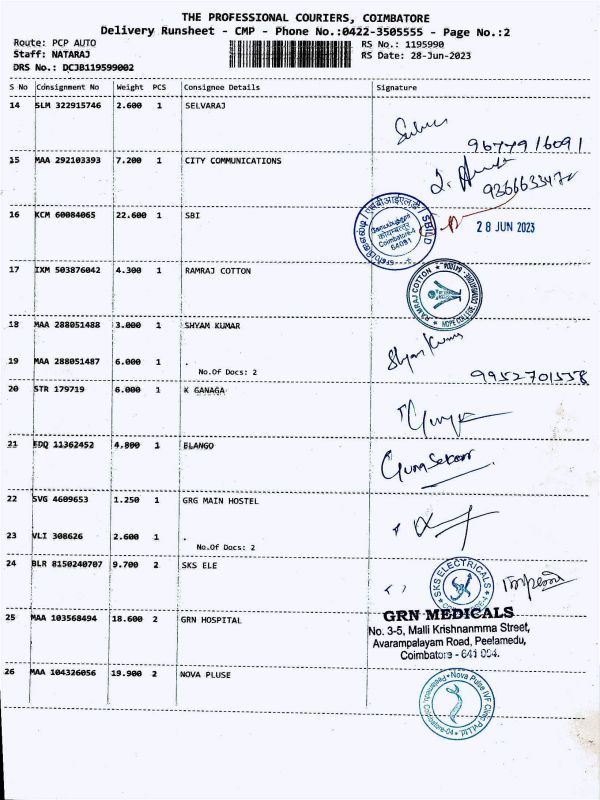 THE PROFESSIONAL COURIERS, COIMBATORE
Delivery Runsheet - CMP - Phone No.:0422-3505555 - Page No.:2
Route: PCP AUTO
Staff: NATARAJ
DRS No.: DCJB119599002
RS No.: 1195990
RS Date: 28-Jun-2023
S No Consignment No Weight PCS Consignee Details Signature
14 SLM 322915746 2.600 1 SELVARAJ
9677916091
15 MAA 292103393 7.200 1 CITY COMMUNICATIONS
16 KCM 60084065 22.600 1 SBI
Coimbatore-4
28 JUN 2023
17 IXM 503876042 4.300 1 RAMRAJ COTTON
RAMRAJ COTTON
18 MAA 288051488 3.000 1 SHYAM KUMAR
Shyam Kumar
19 MAA 288051487 6.000 1 .
No.Of Docs: 2
9952701558
20 STR 179719 6.000 1 K GANAGA
21 EDQ 11362452 4.800 1 ELANGO
Gunasekar
22 SVG 4609653 1.250 1 GRG MAIN HOSTEL
23 VLI 308626 2.600 1 .
No.Of Docs: 2
24 BLR 8150240707 9.700 2 SKS ELE
SKS ELECTRICALS
25 MAA 103568494 18.600 2 GRN HOSPITAL
GRN MEDICALS
No. 3-5, Malli Krishnanmma Street,
Avarampalayam Road, Peelamedu,
Coimbatore - 641 004.
26 MAA 104326056 19.900 2 NOVA PLUSE
Nova Pulse IVF Clinic Pvt Ltd.
Peelamedu, Coimbatore-04